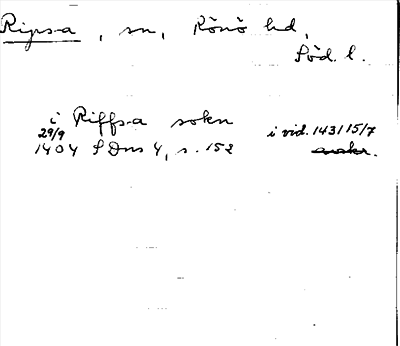 Ripsa, sn, Rönö hd,
Söd. l.
i Riffsa sokn
29/9
1404 SDns 4, s. 152
i vid. 1431 15/7
avskr.